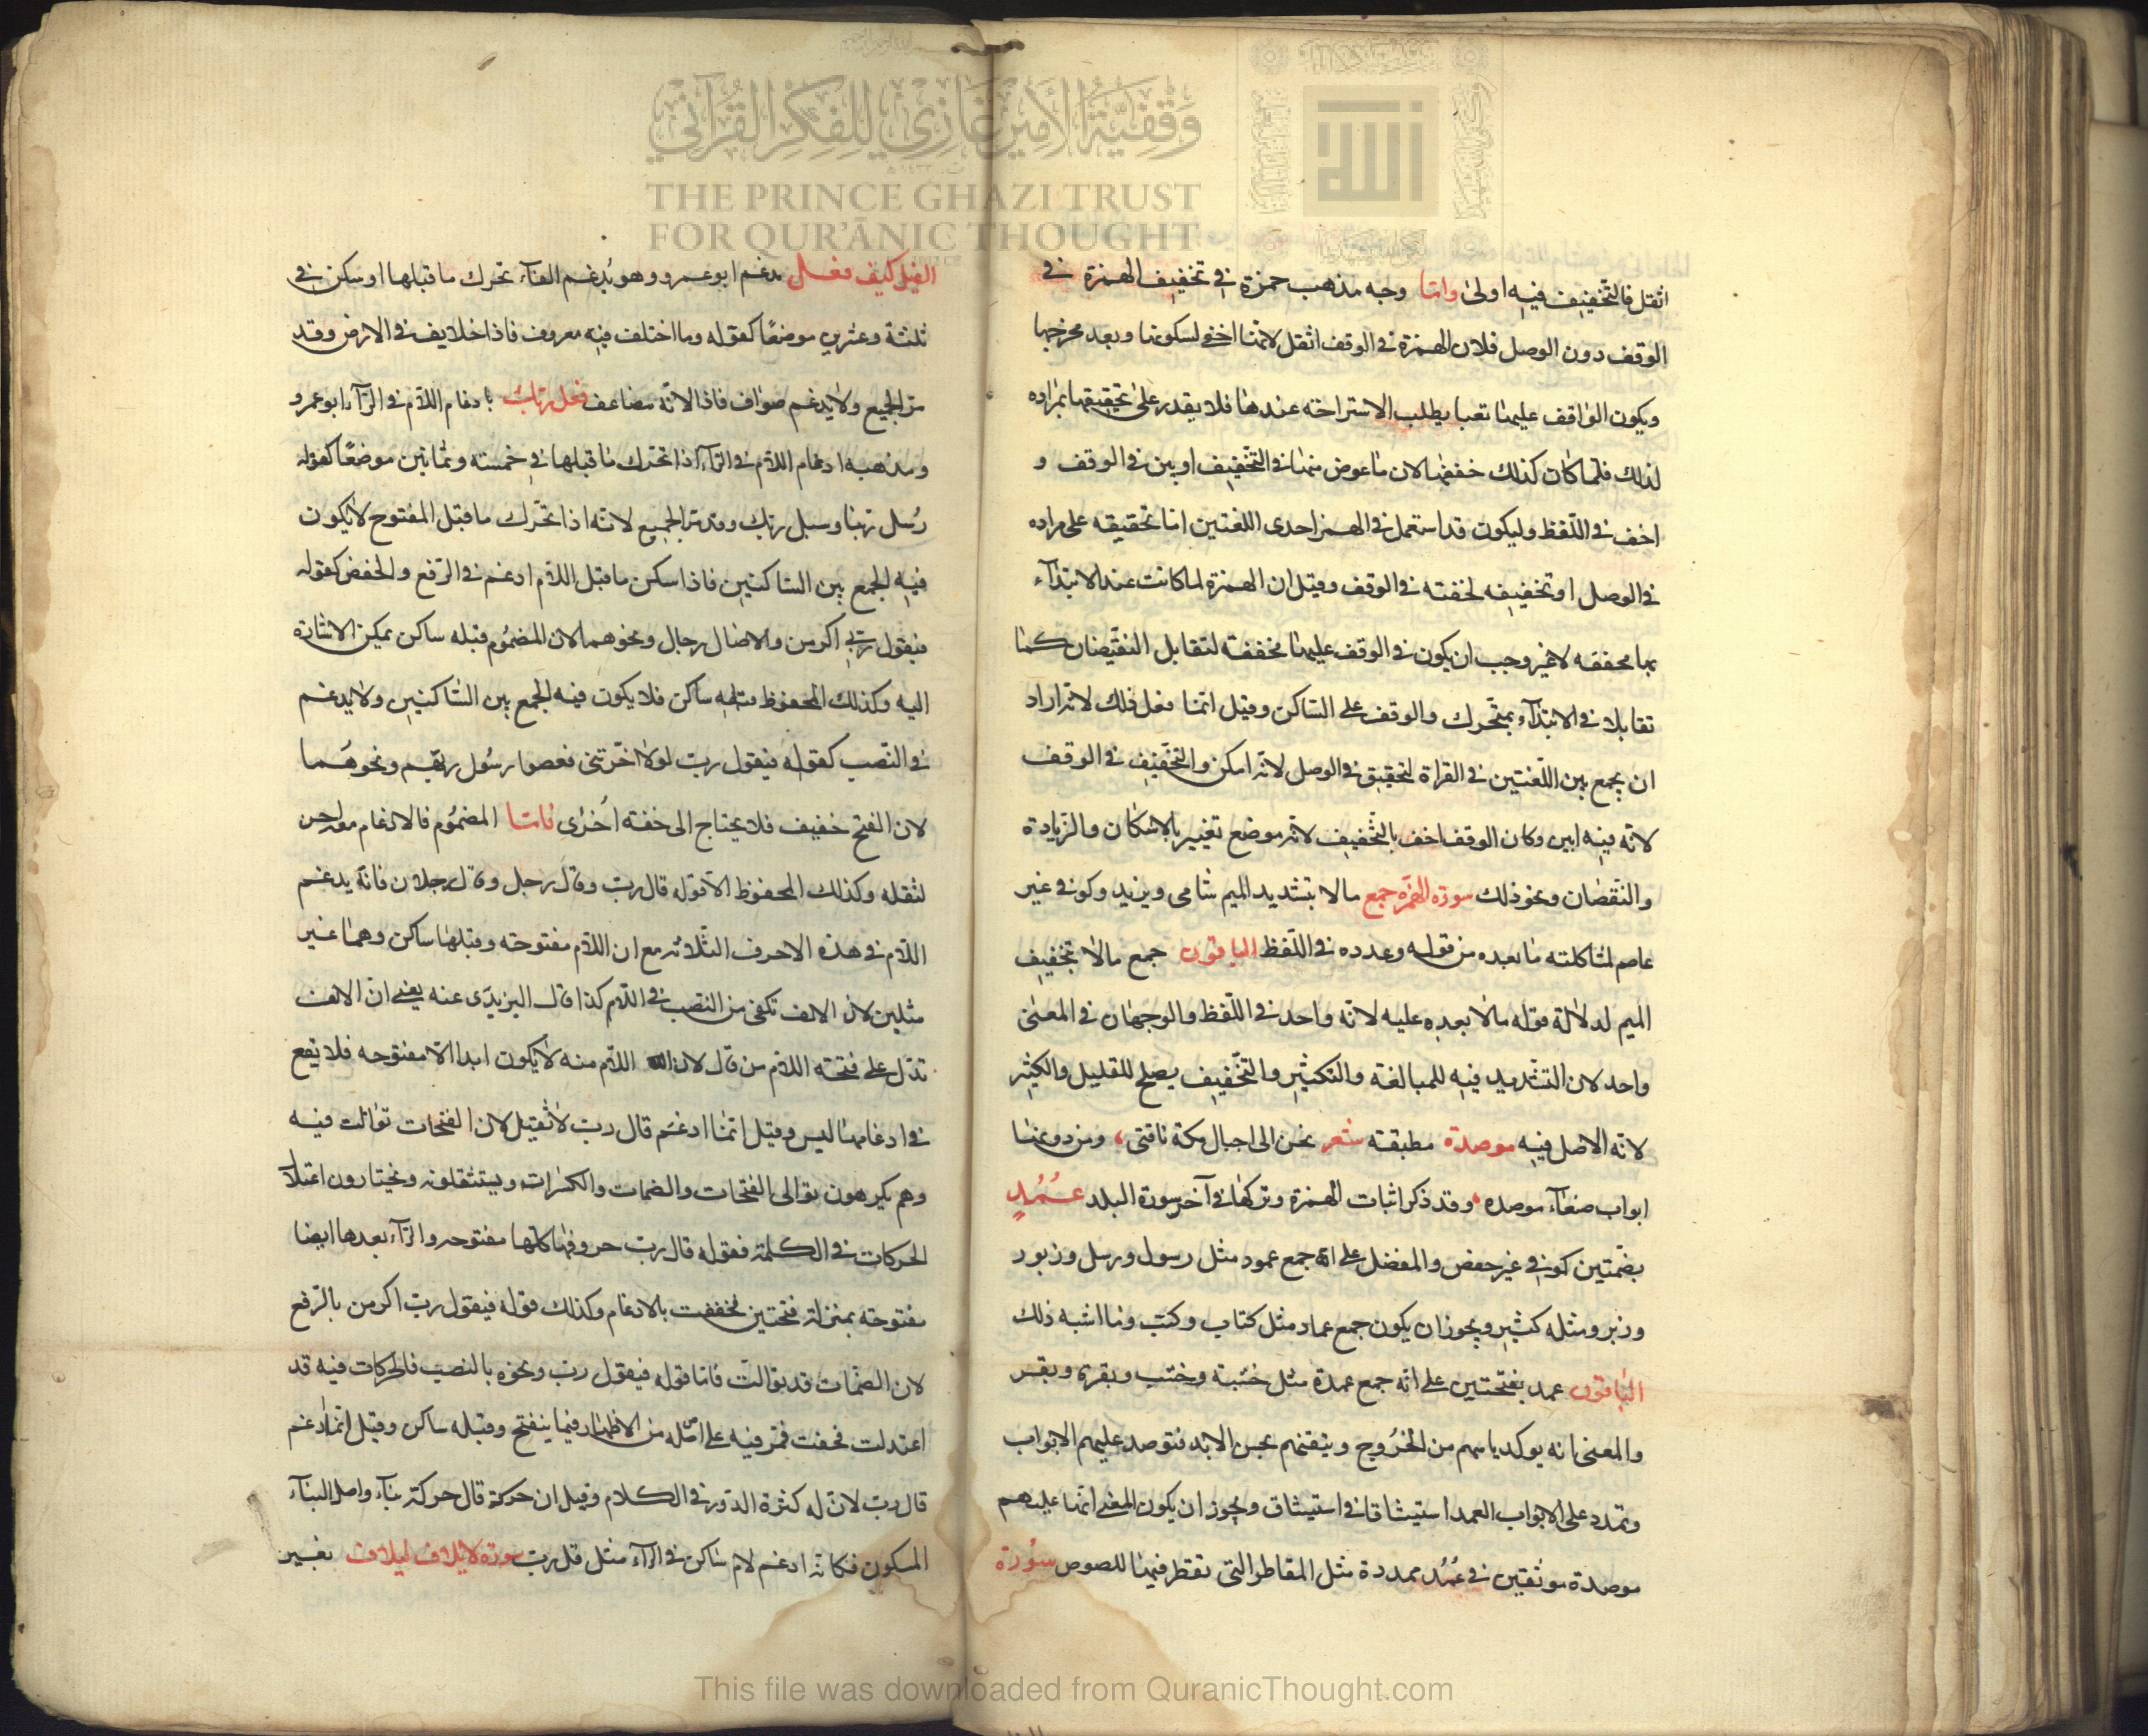 وقفية الأمير غازي للفكر القرآني
THE PRINCE GHAZI TRUST
FOR QUR'ĀNIC THOUGHT
اثقل فالتخفيف فيه اولى واما وجه مذهب حمزة في تخفيف الهمزة في
الوقف دون الوصل فلان الهمزة في الوقف اثقل لانها اخفى لسكونها وبعد مخرجها
ويكون الواقف عليها تعبا يطلب الاستراحة عندها فلا يقدر على تحقيقها بمراده
لذلك فلما كان كذلك خففها لان ما عوض منها في التخفيف ابين في الوقف و
اخف في اللفظ وليكون قد استعمل في الهمز احدى اللغتين اما تحقيقه على مراده
في الوصل او تخفيفه لخفته في الوقف وقيل ان الهمزة لما كانت عند الابتدآء
بها محققه لا غير وجب ان يكون في الوقف عليها مخففة لتقابل النقيضان كما
تقابلا في الابتدآء بمتحرك والوقف على الساكن وقيل انما فعل ذلك لانه اراد
ان يجمع بين اللغتين في القراة لتحقيق في الوصل لانه امكن والتخفيف في الوقف
لانه فيه ابين وكان الوقف اخف بالتخفيف لانه موضع تغيير بالاسكان والزيادة
والنقصان ونحو ذلك سورة الهمزة جمع مالا بتشديد الميم شامى ويزيد وكوفى غير
عاصم لمشاكلته ما بعده من قوله وعدده في اللفظ الباقون جمع مالا بتخفيف
الميم لدلالة قوله مالا بعده عليه لانه واحد في اللفظ والوجهان في المعنى
واحد لان التشديد فيه للمبالغة والتكثير والتخفيف يصلح للقليل والكثير
لانه الاصل فيه موصدة مطبقة شعر تحن الى اجبال مكة ناقتى ومن دونها
ابواب صنعآء موصده وقد ذكر اثبات الهمزة وتركها في آخر سورة البلد عُمُدٍ
بضمتين كوفى غير حفص والمفضل على انه جمع عمود مثل رسول ورسل وزبور
وزبر ومثله كثير ويجوز ان يكون جمع عماد مثل كتاب وكتب وما اشبه ذلك
الباقون عمد بفتحتين على انه جمع عمدة مثل خشبة وخشب وبقرة وبقر
والمعنى انه يوكد ياسهم من الخروج وتيقنهم بحبس الابد فتوصد عليهم الابواب
وتمدد على الابواب العمد استيثاقا في استيثاق ويجوز ان يكون المعنى انها عليهم
موصدة موثقين في عُمُد ممددة مثل المقاطر التى تقطر فيها اللصوص سورة
الفيل كيف فعل مدغم ابو عمرو وهو يُدغم الفآء تحرك ما قبلها او سكن في
ثلثة وعشرين موضعًا كقوله وما اختلف فيه معروف فاذا خلايف في الارض وقد
مر الجميع ولا يدغم صواف فاذا لانه مضاعف فعل ربك بادغام اللام في الرآء ابو عمرو
ومذهبه ادغام اللام في الرآء اذا تحرك ما قبلها في خمسة وثمانين موضعًا كقوله
رُسل ربنا وسبل ربك وقد مر الجميع لانه اذا تحرك ما قبل المفتوح لا يكون
فيه الجمع بين الساكنين فاذا سكن ما قبل اللام ادغم في الرفع والخفض كقوله
فيقول ربى اكرمن والاصال رجال ونحوهما لان المضموم قبله ساكن تمكن الاشارة
اليه وكذلك المخفوظ مثله ساكن فلا يكون فيه الجمع بين الساكنين ولا يدغم
في النصب كقوله فيقول رب لولا اخرتنى فعصوا رسُول ربهم ونحوهُما
لان الفتح خفيف فلا يحتاج الى خفة اُخرى فاما المضمُوم فالادغام
لثقله وكذلك المخفوظ الا قوله قال رب وقال رجل وقال رجلان فانه يدغم
اللام في هذه الاحرف الثلاثة مع ان اللام مفتوحة وقبلها ساكن وهما غير
مثلين لان الالف تكفى من النصب في اللام كذا قال اليزيدى عنه يعنى ان الالف
تدل على فتحة اللام من قال لان اللام منه لا يكون ابدا الا مفتوحه فلا يقع
في ادغامها لبس وقيل انما ادغم قال رب لا ثقيل لان الفتحات توالت فيه
وهم يكرهون توالى الفتحات والضمات والكسرات ويستثقلونه ويختارون اعتدال
الحركات في الكلمة فقوله قال رب حروفها كلها مفتوحه والرآء بعدها ايضا
مفتوحة بمنزلة فتحتين فخففت بالادغام وكذلك قوله فيقول رب اكرمن بالرفع
لان الضمات قد توالت فاما قوله فيقول رب ونحوه بالنصب فالحركات فيه قد
اعتدلت فخفت فمر فيه على اصله من الاظهار فيما ينفتح وقبله ساكن وقيل انما ادغم
قال رب لان له كثرة الدور في الكلام وقيل ان حركة قال حركة بنآء واصل البنآء
السكون فكانه ادغم لام ساكن في الرآء مثل قل رب سورة لايلاف ليلاف بغير
This file was downloaded from QuranicThought.com